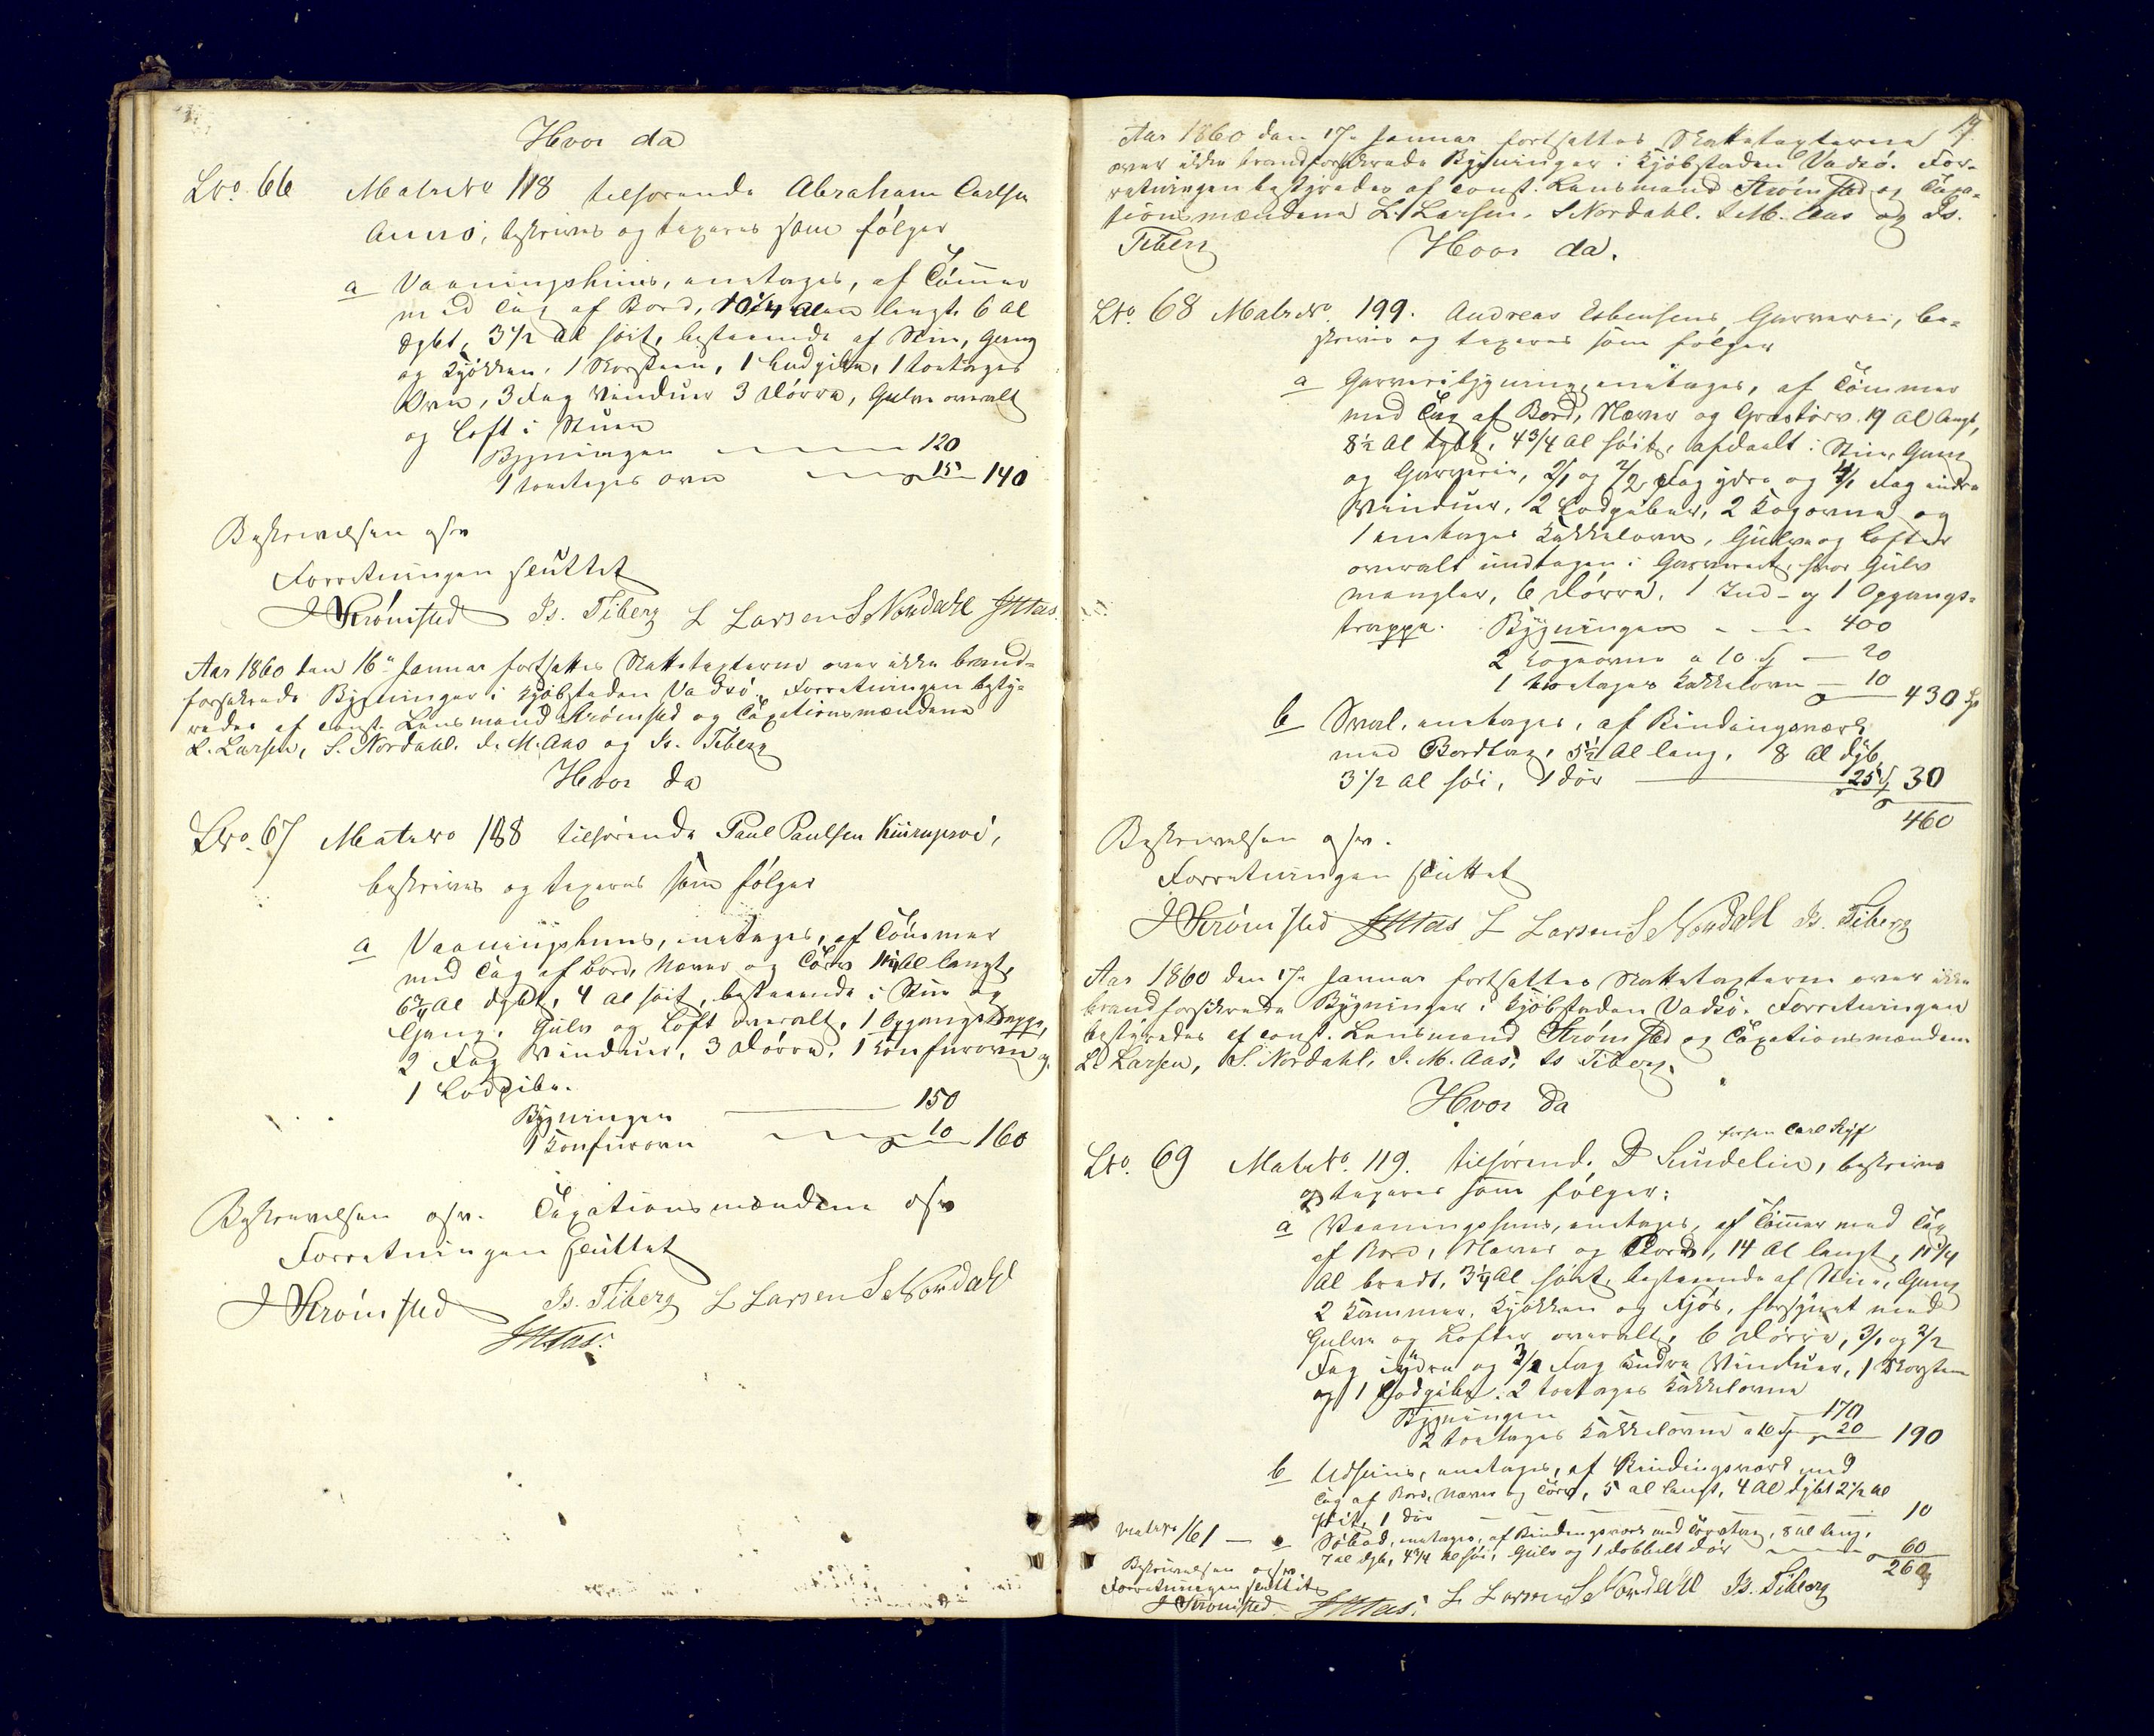 Hvor da
Lno. 66 MatrNo 118 tilhørende Abraham Carlsen
beskrives og taxeres som følger
a Vaaningshuus, eenetages, af Tømmer
med Tag af Bord, 10 1/4 Alen langt 6 Al
dybt, 3 1/2 Al høit, bestaaende af Stue, Gang
og Kjøkken, 1 Skorsteen, 1 Lodpibe, 1 toetages
Ovn, 3 Fag Vinduer 3 Dørre, Gulve overalt
og Loft i Stuen
Bygningen 120
1 toeetages ovn 15 140
Beskrivelsen osv
Forretningen sluttet
J Strömsted Is. Tiberg L Larsen S Nordahl JMAas.
Aar 1860 den 16e Januar fortsattes Skattetaxterne over ikke brand-
forsikrede Bygninger i Kjøbstaden Vadsø. Forretningen besty-
redes af const. Lensmand Strømsted og Taxationsmændene
L. Larsen, S. Nordahl. J. M. Aas og Is. Tiberg
Hvor da
Lno. 67 Matrno 188 tilhørende Paul Paulsen
beskrives og taxeres som følger
a Vaaningshuus, eenetages, af Tømmer
med Tag af Bord, Næver og Törv Al langt,
Al dybt, 4 Al høit, bestaaende i Stue og
Gang. Gulv og Loft overalt, 1 Opgangstrappe,
2 Fag Vinduer, 3 Dørre, 1 Komfurovn og
1 Lodpibe.
Bygningen 150
1 Komfurovn 10 160
Beskrivelsen osv. Taxationsmændene osv
Forretningen sluttet
J Strömsted Is. Tiberg L Larsen S Nordahl
JMAas.
17
Aar 1860 den 17e Januar fortsattes Skattetaxterne
over ikke brandforsikrede Bygninger i Kjøbstaden Vadsø. For-
retningen bestyredes af const. Lensmand Strömsted og Taxa-
tionsmændene L. Larsen, S Nordahl. J. M. Aas og Is.
Tiberg Hvor da.
Lno. 68 Matrno. 199. Andreas Esbensens Garveri, be-
skrives og taxeres som følger
a Garveribygning, eenetages, af Tømmer
med Tag af Bord, Næver og Græstørv. 19 Al langt,
8 1/2 Al dybt, 4 3/4 Al høit, afdeelt i Stue, Gang
og Garverie, 2/1 og 2/2 Fag ydre og 4/1 Fag indre
Vinduer, 2 Lodpiber, 2 Kogovne og
1 eenetages Kakkelovn, Gulve og Lofter
overalt undtagen i Garveriet, hvor Gulv
mangler, 6 Dørre, 1 Ind- og 1 Opgangs-
trappe. Bygningen 400
2 Kogeovne a 10 20
1 Kakkelovn 10
430
b Sval, eenetages, af Bindingsværk
med Bordtag, 5 1/2 Al lang, 8 Al dyb,
3 1/2 Al høi, 1 Dör 25 30
460
Beskrivelsen osv.
Forretningen sluttet
J Strömsted JMAas L Larsen S Nordahl Is. Tiberg
Aar 1860 den 17e Januar fortsattes Skattetaxterne over ikke
brandforsikrede Bygninger i Kjøbstaden Vadsø. Forretningen
bestyredes af const. Lensmand Strömsted og Taxationsmændene
L. Larsen, S. Nordahl, J. M. Aas, Is Tiberg.
Hvor da
Carl
Lno. 69 Matrno. 119. tilhørende. Sundelin, beskrives
og taxeres som følger:
a Vaaningshuus, eenetages, af Tömmer med Tag
af Bord, Næver og Törv, 14 Al langt, 11 1/4
Al bredt, 3 1/4 Al høit, bestaaende af Stue, Gang
2 Kammer, Kjøkken og Fjøs, forsynet med
Gulve og Lofter overalt, 6 Dørre, 3/1 og 2/2
Fag ydre og Fag indre Vinduer, 1 Skorsteen
og 1 Lodpibe. 2 toetages Kakkelovne
Bygningen 170
2 toetages Kakkelovne a 10 20 190
b Udhuus, eenetages, af Bindingsværk med
Tag af Bord, Næver og Törv, 5 Al langt, 4 Al dybt 2 1/2 Al
høit, 1 Dör 10
Matrno 161 — c Søbod, eenetages, af Bindingsværk med Törvtag, 8 Al lang,
7 Al dyb, 4 3/4 Al høi, Gulv og 1 dobbelt Dör 60
260
Beskrivelsen osv.
Forretningen sluttet
J Strömsted JMAas. L Larsen S Nordahl Is. Tiberg